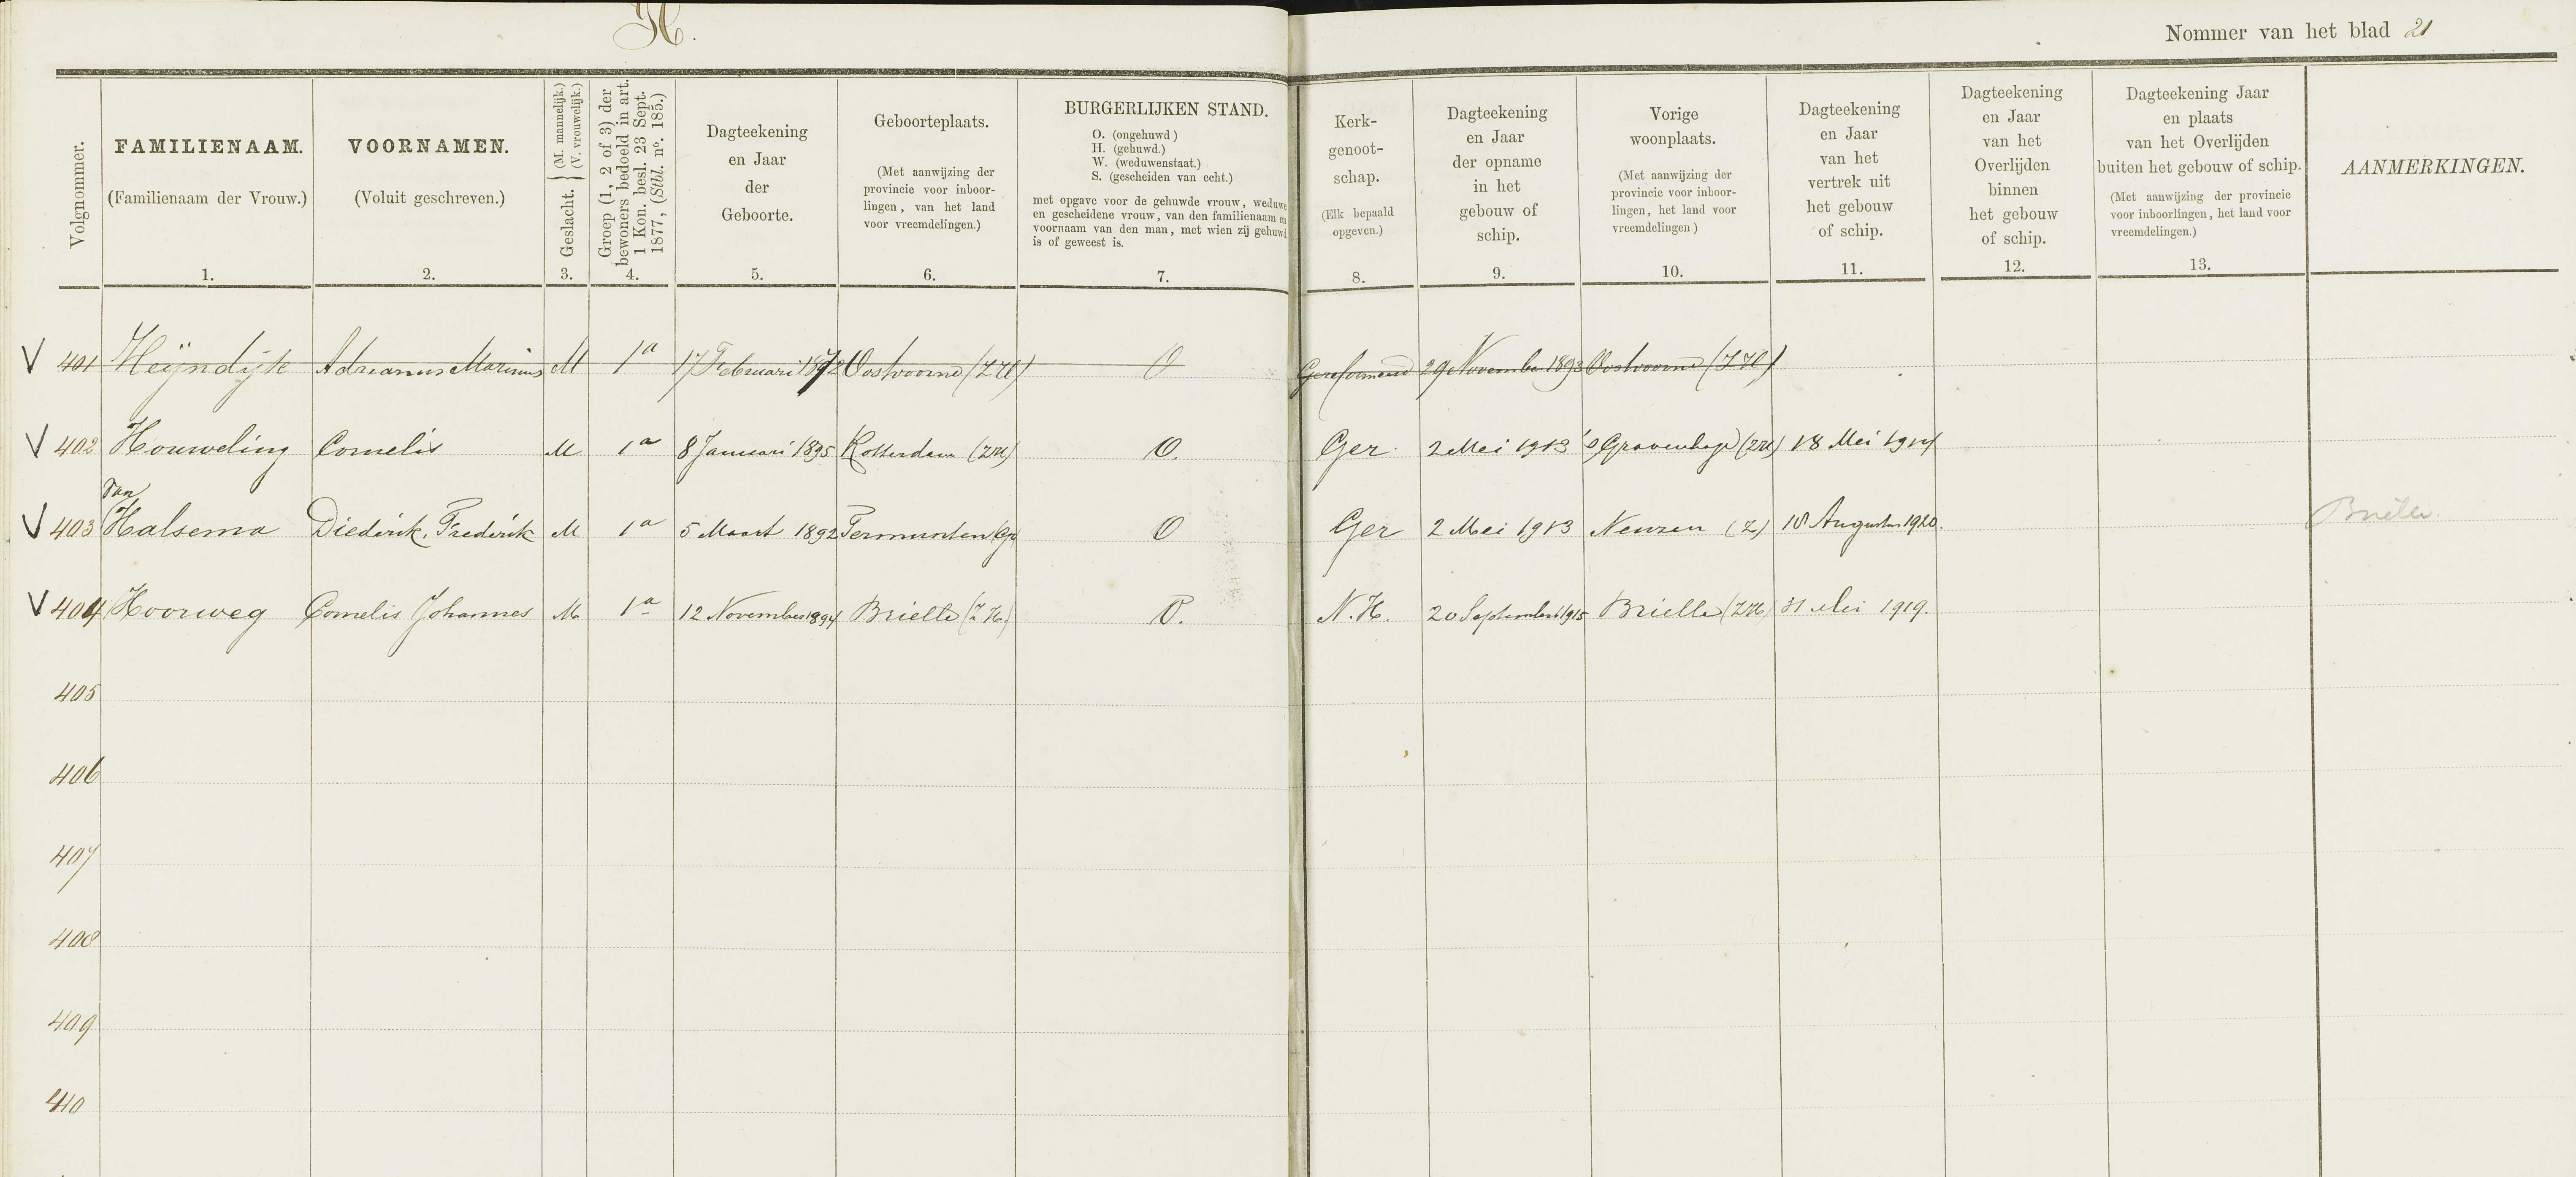 H.
Nommer van het blad 21
Volgnommer.
FAMILIENAAM.
(Familienaam der Vrouw.)
1.
VOORNAMEN.
(Voluit geschreven.)
2.
Geslacht. } (M. mannelijk.) (V. vrouwelijk.)
3.
Groep (1, 2 of 3) der
bewoners bedoeld in art.
1 Kon. besl. 23 Sept.
1877, (Stbl. nº. 185.)
4.
Dagteekening
en Jaar
der
Geboorte.
5.
Geboorteplaats.
(Met aanwijzing der
provincie voor inboor-
lingen, van het land
voor vreemdelingen.)
6.
BURGERLIJKEN STAND.
O. (ongehuwd)
H. (gehuwd.)
W. (weduwenstaat.)
S. (gescheiden van echt.)
met opgave voor de gehuwde vrouw, weduwe
en gescheidene vrouw, van den familienaam en
voornaam van den man, met wien zij gehuwd
is of geweest is.
7.
Kerk-
genoot-
schap.
(Elk bepaald
opgeven.)
8.
Dagteekening
en Jaar
der opname
in het
gebouw of
schip.
9.
Vorige
woonplaats.
(Met aanwijzing der
provincie voor inboor-
lingen, het land voor
vreemdelingen.)
10.
Dagteekening
en Jaar
van het
vertrek uit
het gebouw
of schip.
11.
Dagteekening
en Jaar
van het
Overlijden
binnen
het gebouw
of schip.
12.
Dagteekening Jaar
en plaats
van het Overlijden
buiten het gebouw of schip.
(Met aanwijzing der provincie
voor inboorlingen, het land voor
vreemdelingen.)
13.
AANMERKINGEN.
V 401 Heijndijk Adrianus Marinus M 1a 17 Februari 1872 Oostvoorne (ZH) O Gereformeerd 29 November 1893 Oostvoorne (ZH)
V 402 Houweling Cornelis M 1a 8 Januari 1895 Rotterdam (ZH) O. Ger. 2 Mei 1913 's Gravenhage (ZH) 18 Mei 1914
van
V 403 Halsema Diederik, Frederik M 1a 5 Maart 1892 Termunten (Gr) O Ger 2 Mei 1913 Neuzen (Z) 18 Augustus 1920. Brielle.
V 404 Hoorweg Cornelis Johannes M 1a 12 November 1894 Brielle (Z.H.) O. N.H. 20 September 1915 Brielle (ZH) 31 Mei 1919.
405
406
407
408
409
410